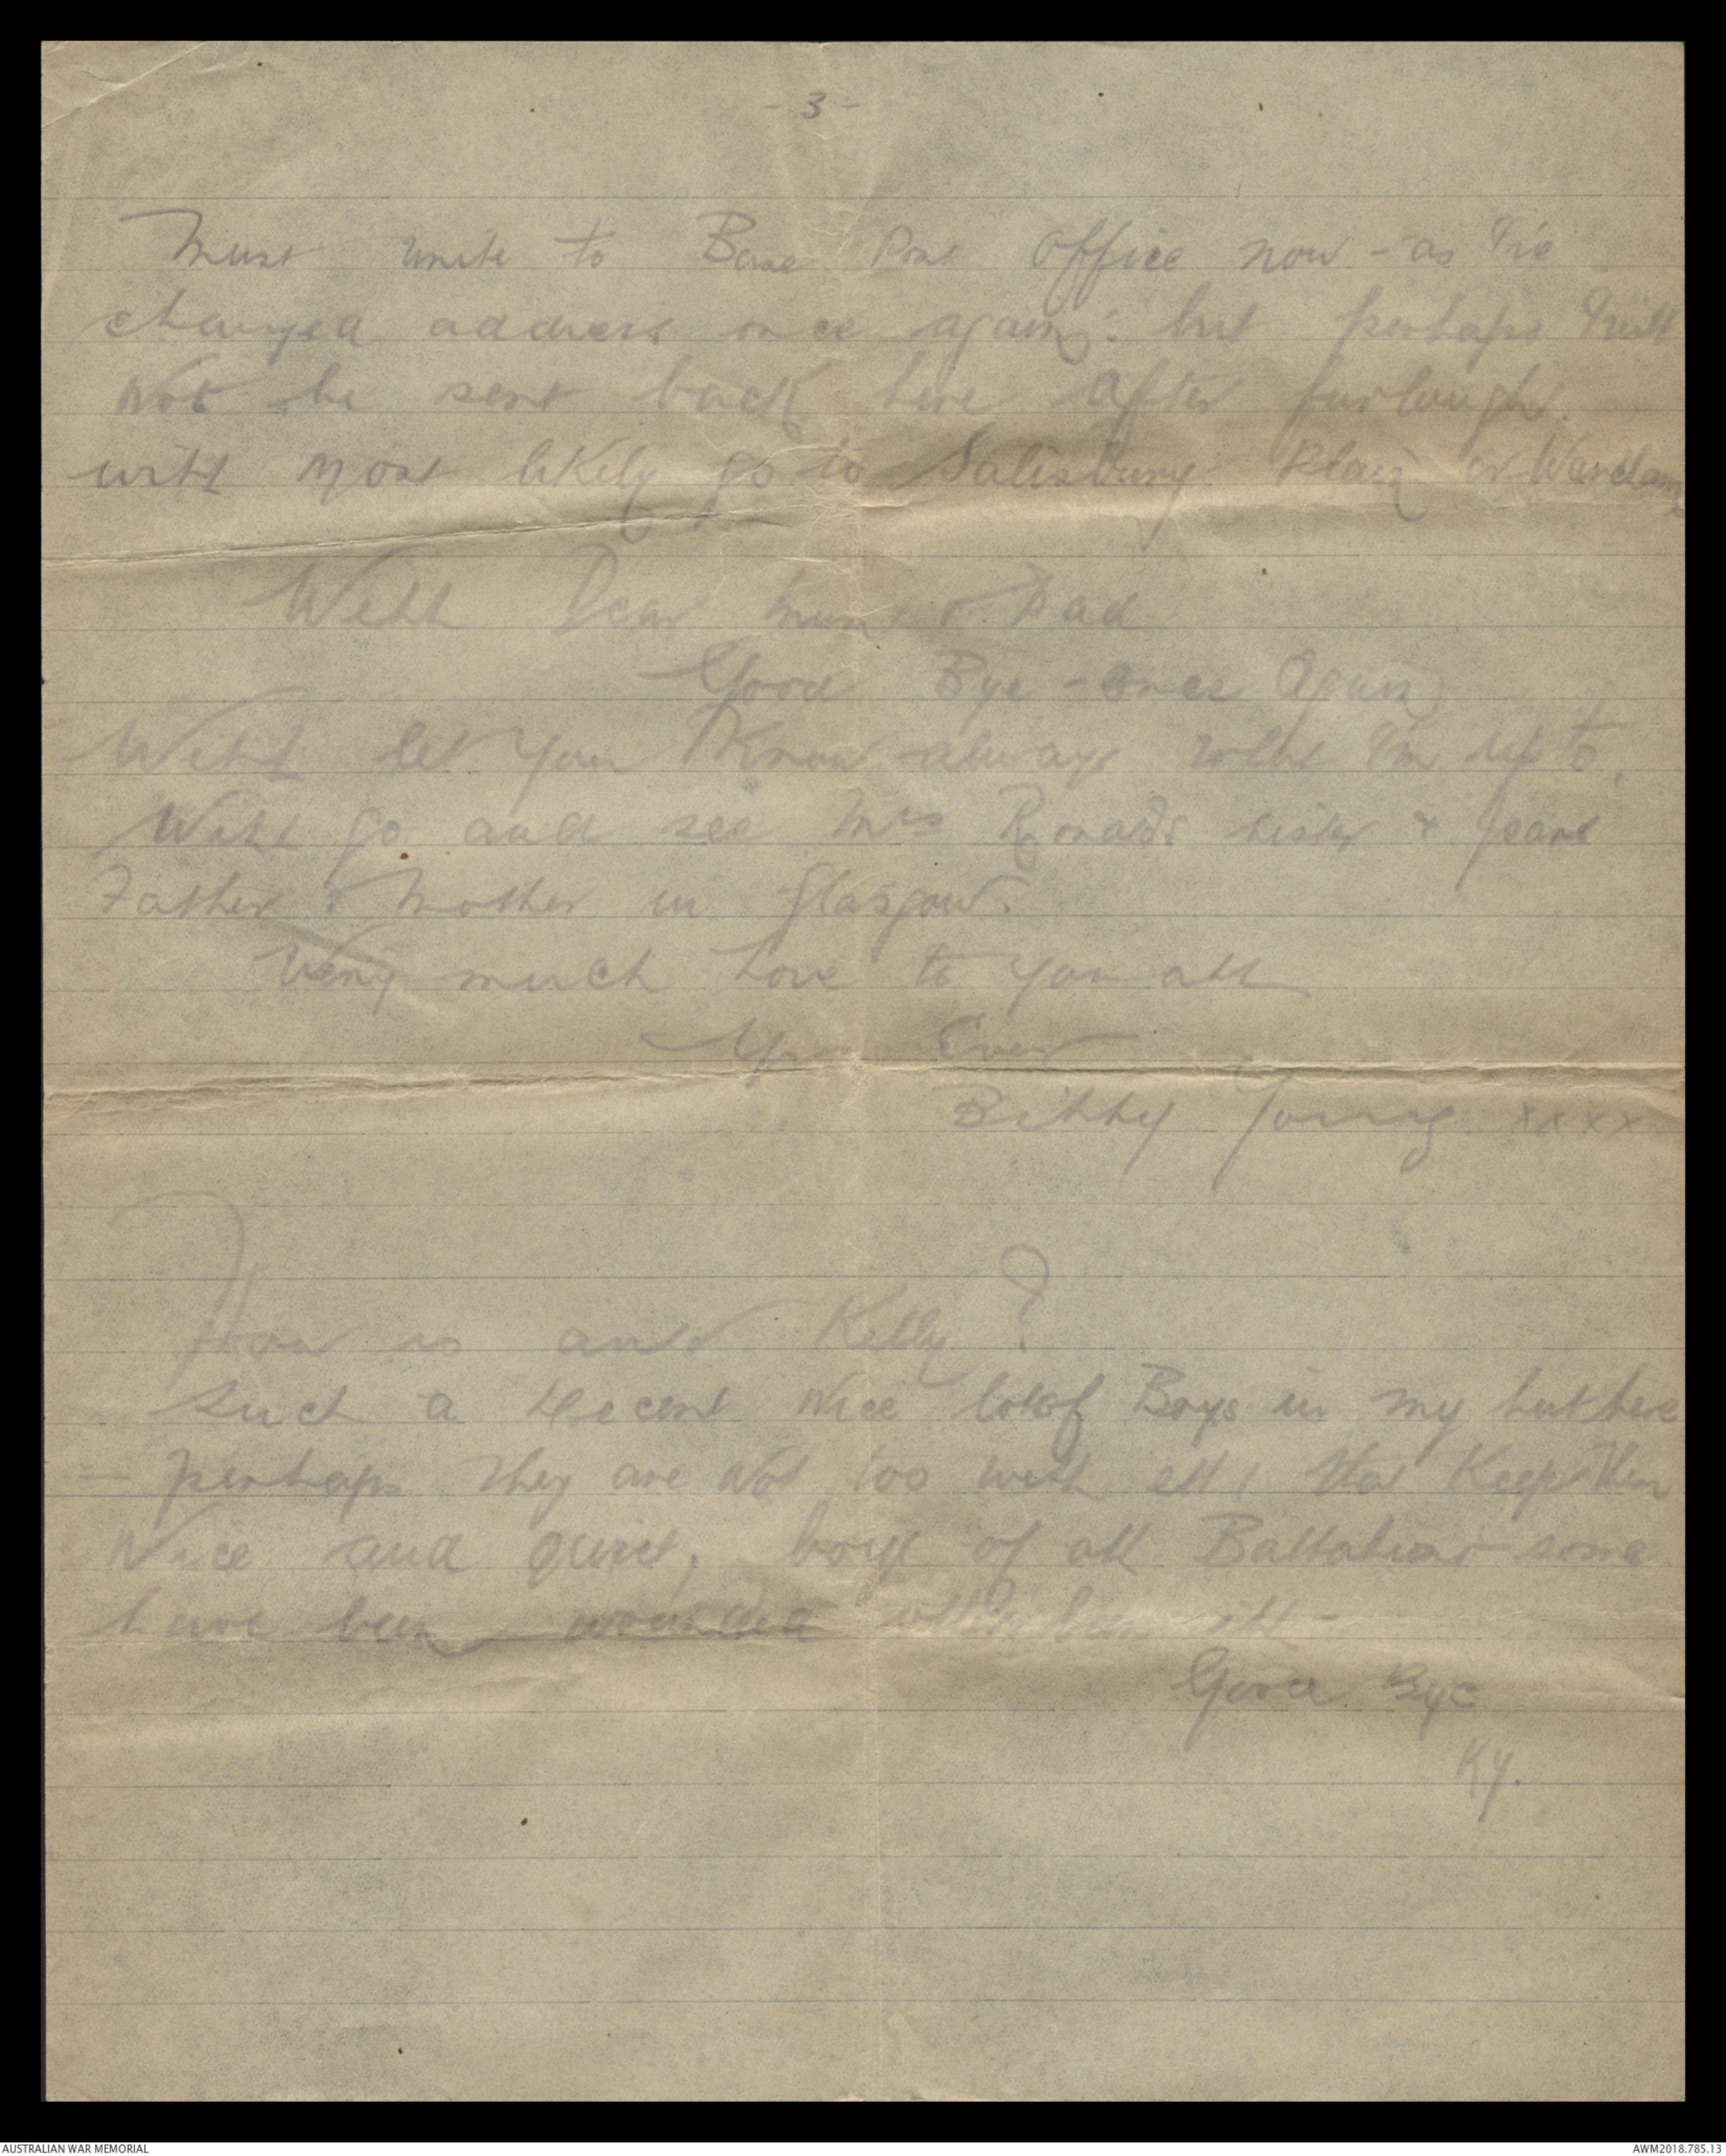 - 3 -
Must write to Base Post Office now - as I've
changed address once again: but perhaps I will
not be sent back here after furlough.
will most likely go to Salisbury Plain or Wareham
Well Dear Mum & Dad
Good Bye - once Again
Will let you Know always what I'm up to.
Will go and see Mrs Ronalds sister & Jeans
Father & Mother in Glasgow.
Very much love to you all
Yrs Ever
Billy Young xxxx
How is Kelly?
Such a decent nice lot of Boys in my hut here
- perhaps they are not too well etc, that Keeps them
Nice and quiet, boys of all Battalions some
have been wounded others been ill -
Good Bye